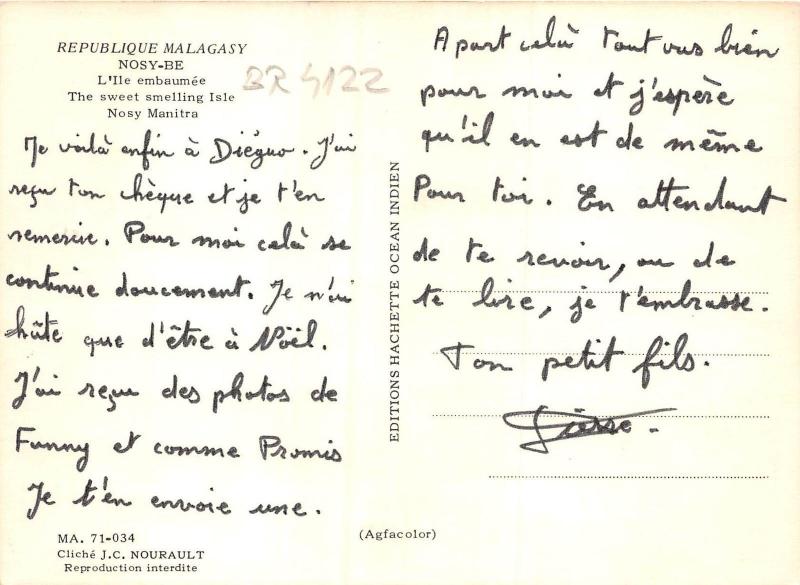 REPUBLIQUE MALAGASY
NOSY-BE
L'Ile embaumée
The sweet smelling Isle
Nosy Manitra
BR 4122
Me voilà enfin à Diéguo. J'ai
reçu ton chèque et je t'en
remercie. Pour moi celà se
continue doucement. Je n'ai
hâte que d'être à Noël.
J'ai reçu des photos de
Fanny et comme Promis
Je t'en envoie une.
MA. 71-034
Cliché J.C. NOURAULT
Reproduction interdite
EDITIONS HACHETTE OCEAN INDIEN
(Agfacolor)
A part celà tout vas bien
pour moi et j'espère
qu'il en est de même
Pour toi. En attendant
de te revoir, ou de
te lire, je t'embrasse.
Ton petit fils.
Pierre.